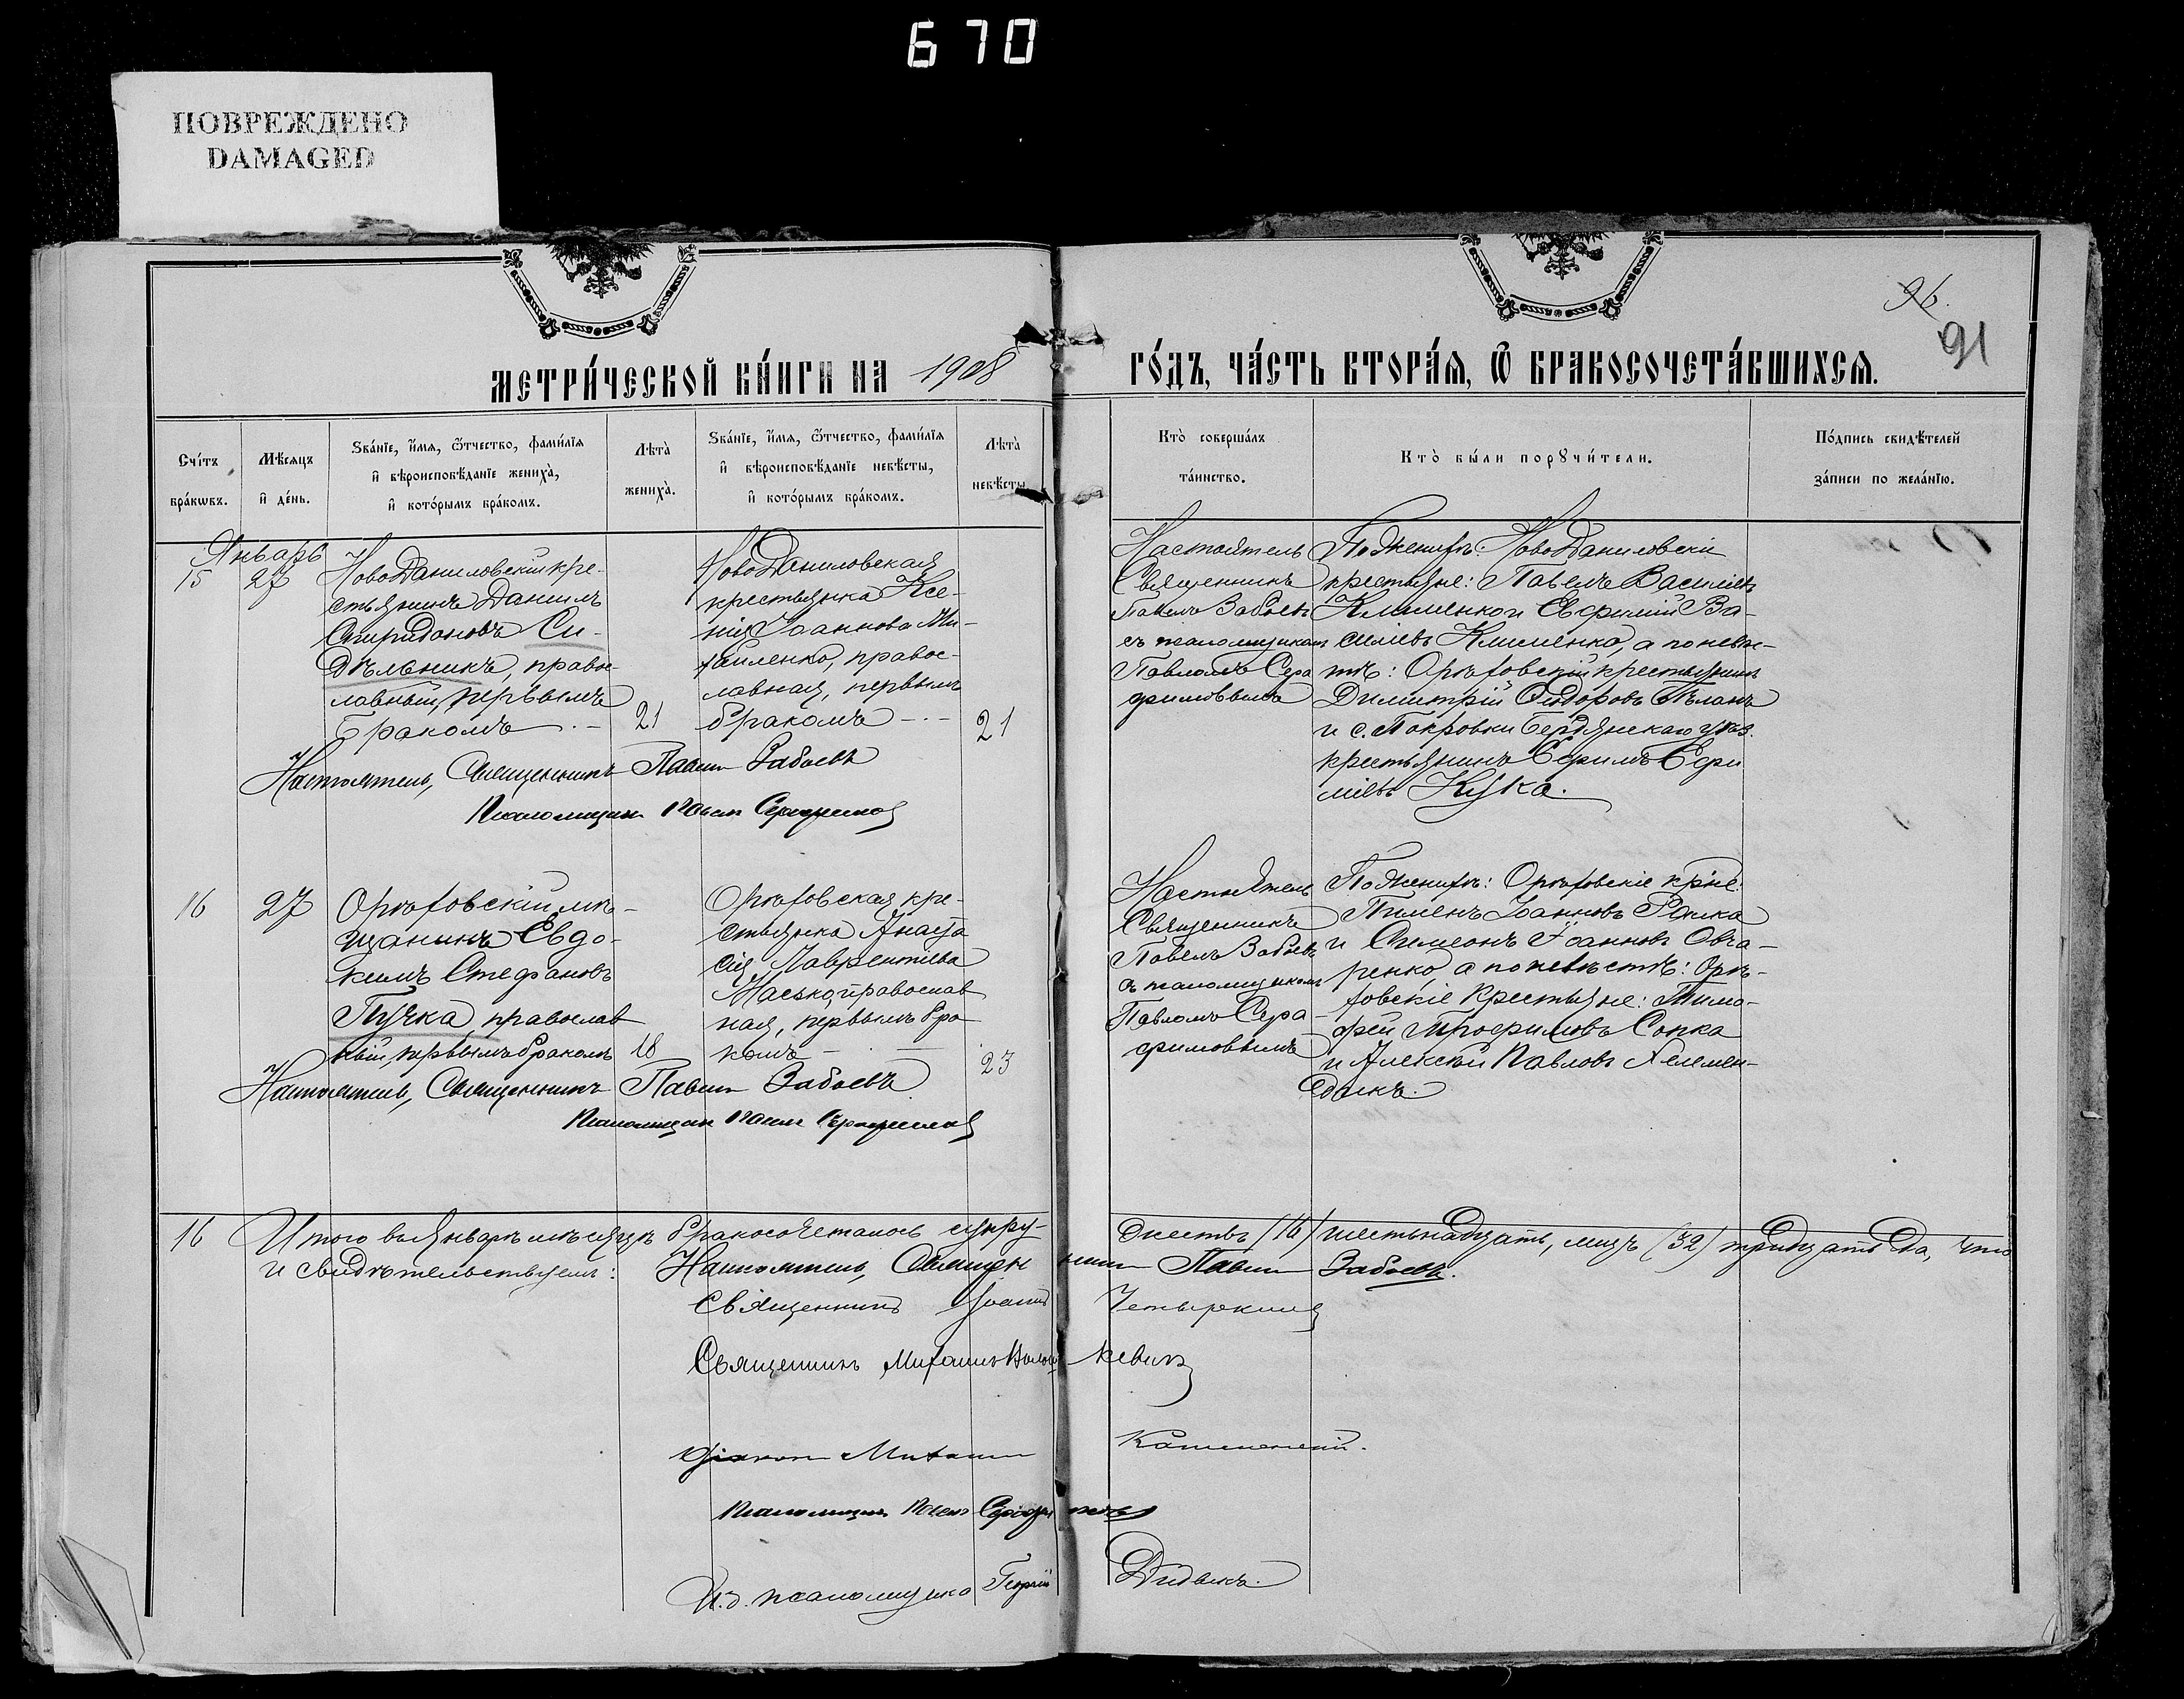 670
ПОВРЕЖДЕНО
DAMAGED
96.
91
МЕТРИ́ЧЕСКОЙ КНИ́ГИ НА 1908 ГО́ДЪ, ЧА́СТЬ ВТОРА́Я, Ѽ БРАКОСОЧЕТА́ВШИХСЯ.
Сче́тъ
бра́кѡвъ.
Мѣ́сяцъ
и҆ де́нь.
Ѕва́нїе, и҆́мя, ѻ҆́тчество, фами́лїя
и҆ вѣроисповѣ́данїе жениха̀,
и҆ кото́рымъ бра́комъ.
Лѣта̀
жениха̀.
Ѕва́нїе, и҆́мя, ѻ҆́тчество, фами́лїя
и҆ вѣроисповѣ́данїе невѣ́сты,
и҆ кото́рымъ бра́комъ.
Лѣта̀
невѣ́сты
Кто̀ соверша́лъ
та́инство.
Кто̀ бы́ли порꙋчи́тели.
По́дпись свидѣ́телей
за́писи по жела́нїю.
Январь
15
27
НовоДаниловскій кре-
стьянинъ Даніилъ
Спиридоновъ Си-
дѣльникъ, право-
славный, первымъ
бракомъ
21
НовоДаниловская
крестьянка Ксе-
нія Іоаннова Ми-
хайленко, правос-
лавная, первымъ
бракомъ
21
Настоятель
Священникъ
Павелъ Забоевъ
съ псаломщикомъ
Павломъ Сера
фимовымъ
По Женихѣ: НовоДаниловскіе
крестьяне: Павелъ Васильевъ
Клименко и Евфимій Ва-
силіевъ Клименко, а по невѣс-
тѣ: Орѣховскій крестьянинъ
Димитрій Ѳедоровъ Бѣланъ
и с. Покровки Бердянскаго уѣз.
крестьянинъ Ефимъ Ефи
міевъ Кука.
Настоятель, Священникъ Павелъ Забоевъ
Псаломщикъ Павелъ Серафимовъ
16
27
Орѣховскій мѣ-
щанинъ Евдо-
кимъ Стефановъ
Пучка, православ
ный, первымъ бракомъ
18
Орѣховская кре-
стьянка Анаста
сія Лаврентіева
Масько, православ
ная, первымъ бра
комъ
23
Настоятель
Священникъ
Павелъ Забоевъ
съ псаломщикомъ
Павломъ Сера-
фимовымъ
По Женихѣ: Орѣховскіе кр-не:
Пименъ Іоанновъ Рямка
и Симеонъ Іоанновъ Овча-
ренко, а по невѣстѣ: Орѣ-
ховскіе крестьяне: Тимо-
фей Трофимовъ Сопка
и Алексѣй Павловъ Келемен-
Настоятель, Священникъ Павелъ Забоевъ
Псаломщикъ Павелъ Серафимовъ
16 Итого въ Январѣ мѣсяцѣ бракосочеталось супру-
жествъ (16) шестьнадцать, лицъ (32) тридцать два, что
и свидѣтельствуемъ: Настоятель, Священникъ Павелъ Забоевъ.
Священникъ Іоаннъ
Священникъ Михаилъ
Діаконъ Михаилъ Каменскій.
Псаломщикъ Павелъ Серафимовъ
И. д. псаломщика Георгій Дидыкъ.